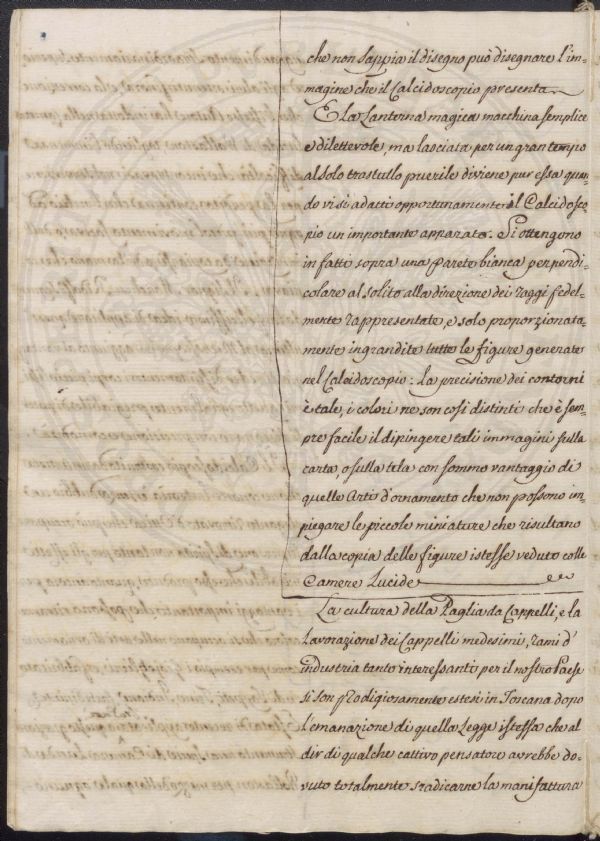 che non sappia il disegno può disegnare l'im=
magine che il Calcidoscopio presenta
E la Lanterna magica macchina semplice
e dilettevole, ma lasciata per un gran tempo
al solo trastullo puerile diviene pur essa quan=
do vi si adatti opportunamente il Caleidosco=
pio un importante apparato. Si ottengono
in fatti sopra una Parete bianca perpendi=
colare al solito alla direzione dei raggi fedel=
mente rappresentate, e solo proporzionata=
mente ingrandite tutte le figure generate
nel Caleidoscopio: la precisione dei contorni
è tale, i colori ne son così distinti che è sem=
pre facile il dipingere tali immagini sulla
carta, o sulla tela con sommo vantaggio di
quelle Arti d'ornamento che non possono im=
piegare le piccole miniature che risultano
dalla copia delle figure istesse vedute colle
Camere Lucide
La cultura della Paglia da Cappelli, e la
Lavorazione dei Cappelli medesimi, rami d'
industria tanto interessanti per il nostro Paese
si son prodigiosamente estesi in Toscana dopo
l'emanazione di quella Legge istessa che al
dir di qualche cattivo pensatore avrebbe do=
vuto totalmente sradicarne la manifattura